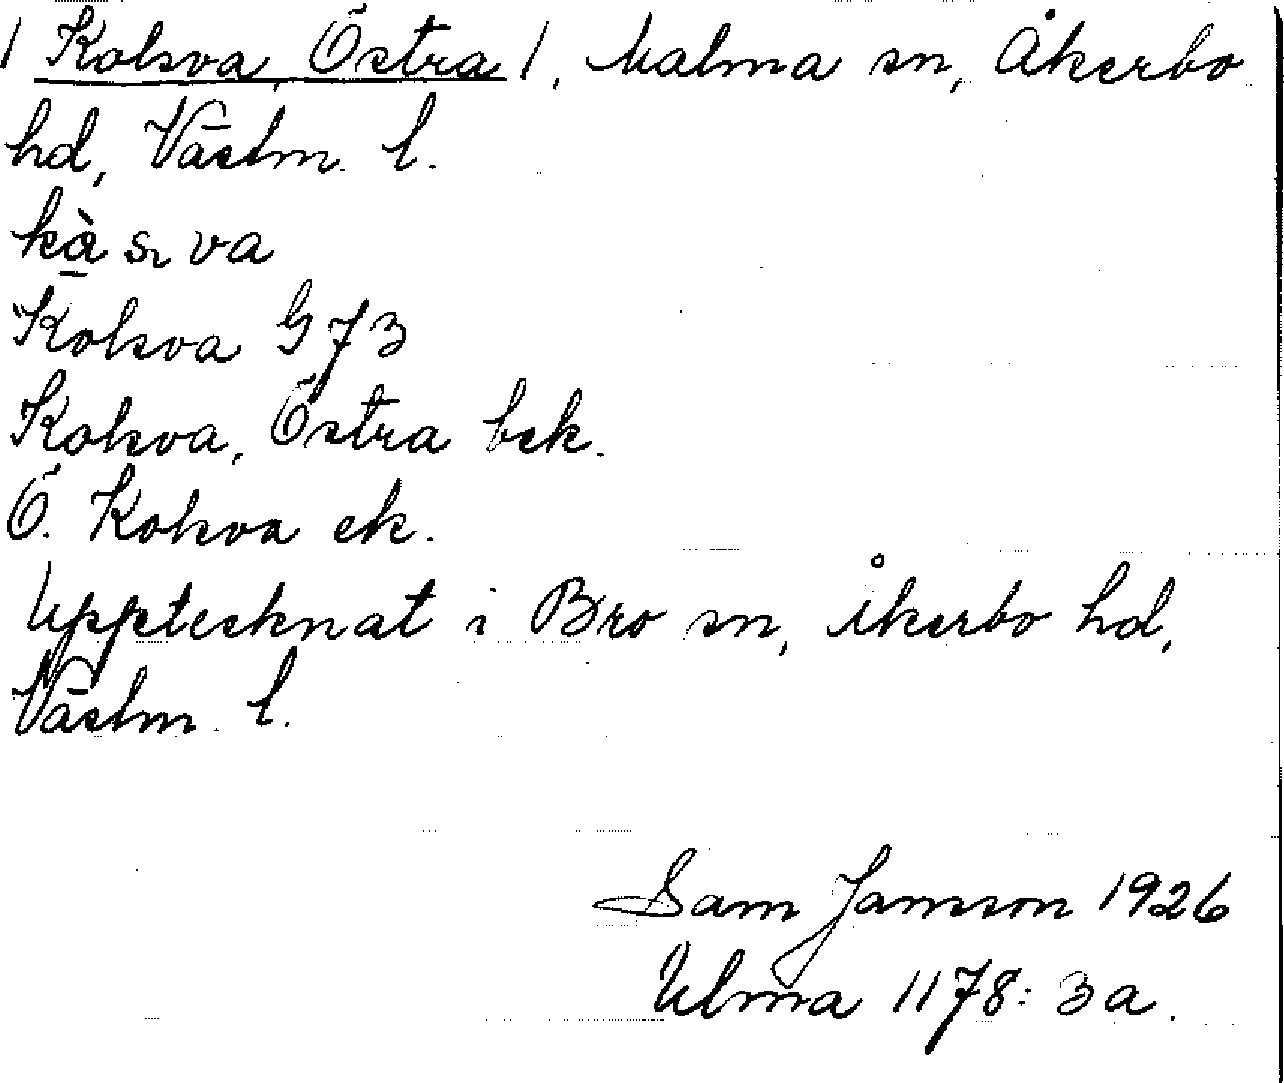 / Kolsva, Östra /, Malma sn, Åkerbo
hd, Västm. l.
kà̱sva
Kolsva G 73
Kolsva, Östra bek.
Ö. Kolsva ek.
Upptecknat i Bro sn, Åkerbo hd,
Västm. l.
Sam Jansson 1926
Ulma 1178: 3a.